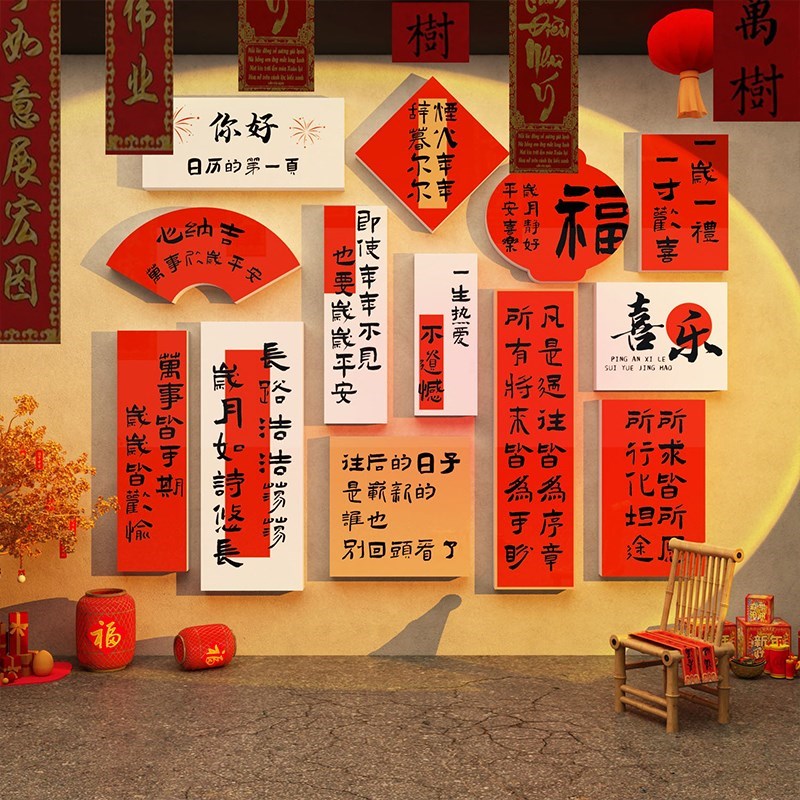 如意展宏图
伟业
Ý
樹
Như
Ý
萬樹
你好
日历的第一頁
煙火年年
辞暮尔尔
福
歲月靜好
平安喜樂
一歲一禮
一寸歡喜
心納吉
萬事 歲平安
即使年年不見
也要歲歲平安
一生热爱
不遺憾
凡是過往皆為序章
所有將来皆為可盼
喜乐
PING AN XI LE
SUI YUE JING HAO
萬事皆可期
歲歲皆歡愉
長路浩浩荡荡
歲月如詩悠長
往后的日子
是嶄新的
誰也
别回頭看了
所求皆所愿
所行化坦途
福
新年